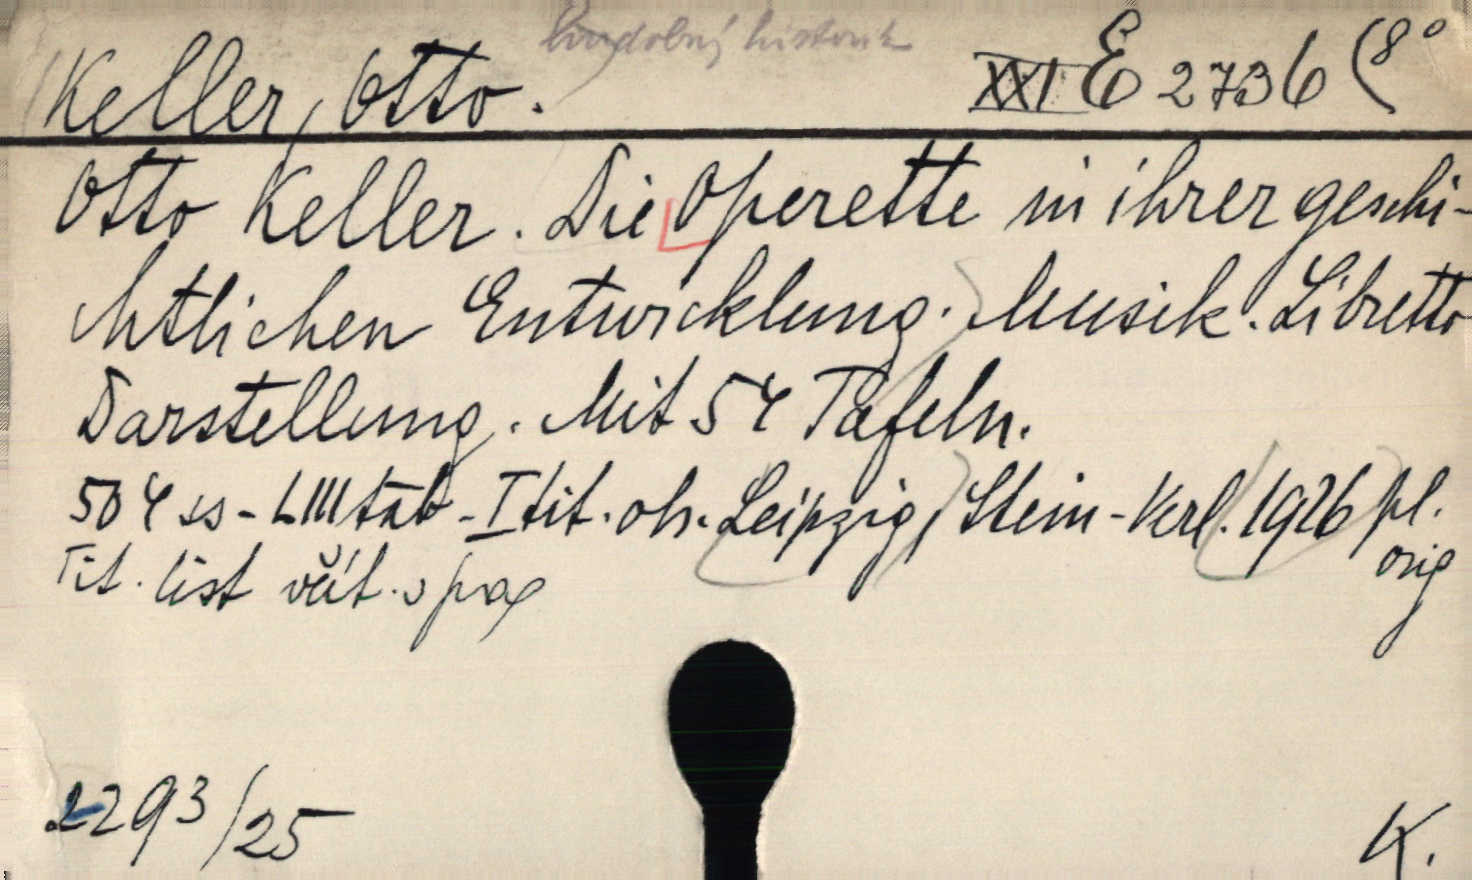 hudobný historik
Keller, Otto. XXI E 2736 (8°
Otto Keller. Die Operette in ihrer geschi-
chtlichen Entwicklung. Musik. Libretto
Darstellung. Mit 54 Tafeln.
504 ss - LIII tab - I tit. ob. Leipzig, Stein-Verl. 1926 pl.
orig
Tit. list včít. v pag
2293/25
K.